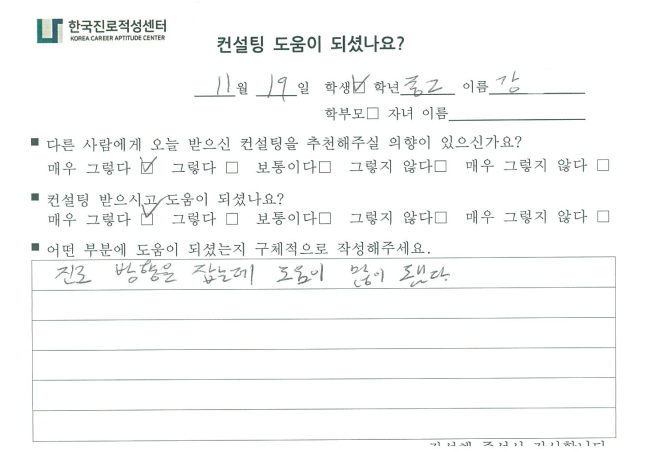 한국진로적성센터
KOREA CAREER APTITUDE CENTER
컨설팅 도움이 되셨나요?
11월 19일 학생☑ 학년 중2 이름 강
학부모□ 자녀 이름
■ 다른 사람에게 오늘 받으신 컨설팅을 추천해주실 의향이 있으신가요?
매우 그렇다 ☑ 그렇다 □ 보통이다□ 그렇지 않다□ 매우 그렇지 않다 □
■ 컨설팅 받으시고 도움이 되셨나요?
매우 그렇다 ☑ 그렇다 □ 보통이다□ 그렇지 않다□ 매우 그렇지 않다 □
■ 어떤 부분에 도움이 되셨는지 구체적으로 작성해주세요.
진로 방향을 잡는데 도움이 많이 됐다.